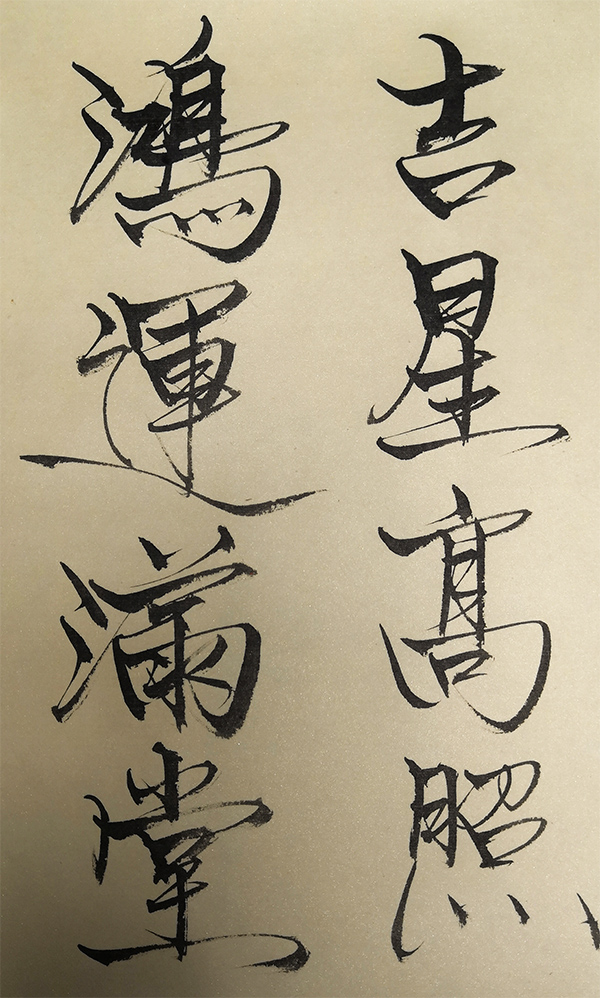 吉星髙照
鴻運滿堂